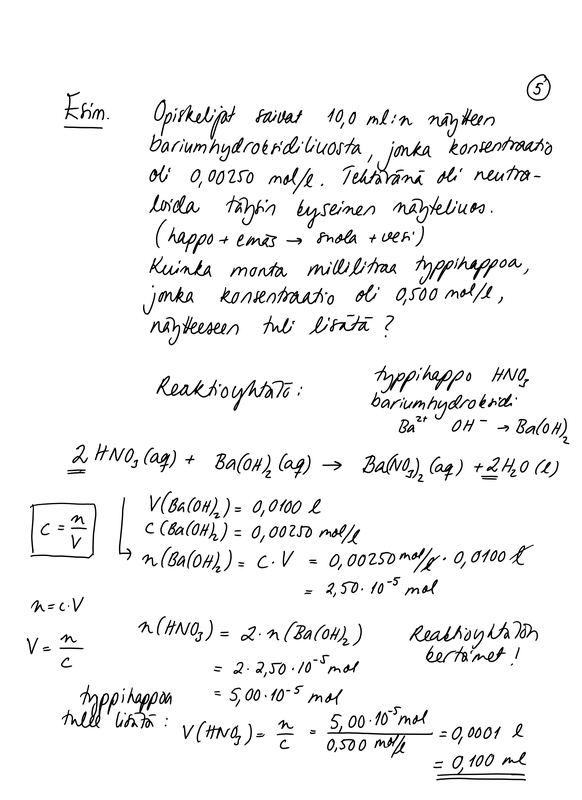 5
Esim. Opiskelijat saivat 10,0 ml:n näytteen
bariumhydroksidiliuosta, jonka konsentraatio
oli 0,00250 mol/l. Tehtävänä oli neutra-
loida täysin kyseinen näyteliuos.
(happo + emäs → suola + vesi)
Kuinka monta millilitraa typpihappoa,
jonka konsentraatio oli 0,500 mol/l,
näytteeseen tuli lisätä?
Reaktioyhtälö: typpihappo HNO₃
bariumhydroksidi
Ba²⁺ OH⁻ → Ba(OH)₂
2 HNO₃ (aq) + Ba(OH)₂ (aq) → Ba(NO₃)₂ (aq) + 2 H₂O (l)
c = n/V
V(Ba(OH)₂) = 0,0100 l
c(Ba(OH)₂) = 0,00250 mol/l
n(Ba(OH)₂) = c·V = 0,00250 mol/l · 0,0100 l
= 2,50·10⁻⁵ mol
n = c·V
V = n/c
n(HNO₃) = 2·n(Ba(OH)₂) Reaktioyhtälön
kertoimet!
= 2·2,50·10⁻⁵ mol
= 5,00·10⁻⁵ mol
typpihappoa
tulee lisätä: V(HNO₃) = n/c = 5,00·10⁻⁵ mol / 0,500 mol/l = 0,0001 l
= 0,100 ml